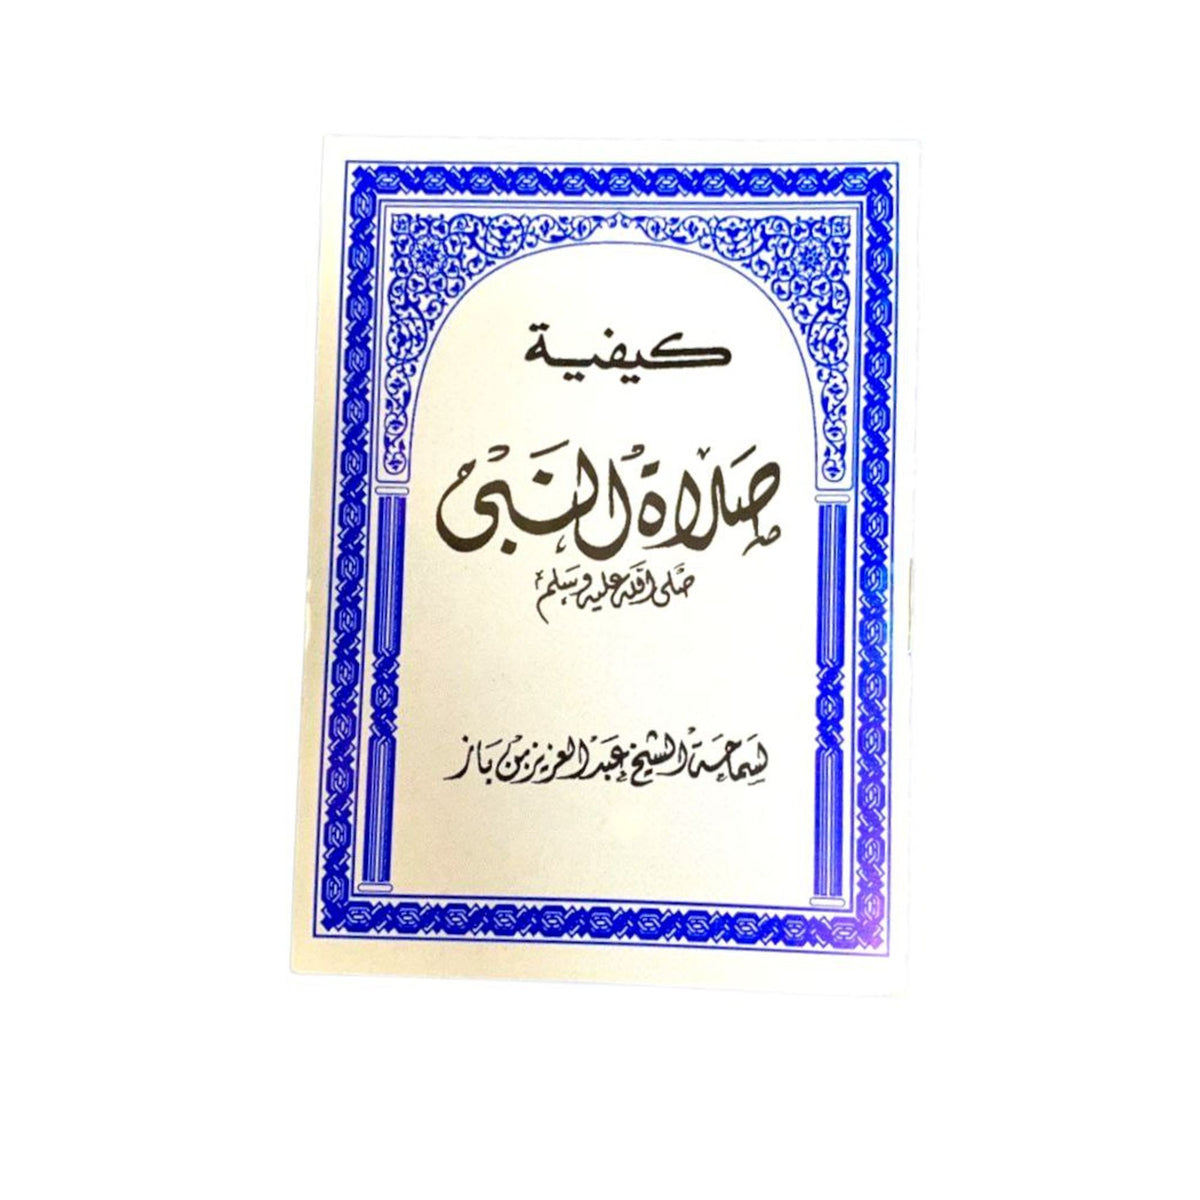 كيفية
صلاة النبي
صلى الله عليه وسلم
لسماحة الشيخ عبد العزيز بن باز